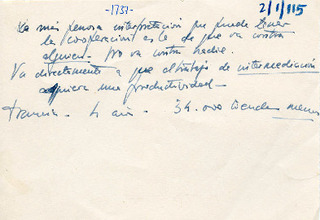 -1737-
2/1/115
La más penosa interpretación que puede tener
la cooperación es la de que va contra
alguien. No va contra nadie.
Va directamente a que el trabajo de intermediación
adquiera una productividad.
Francia - 4 - 34.000 tiendas menos